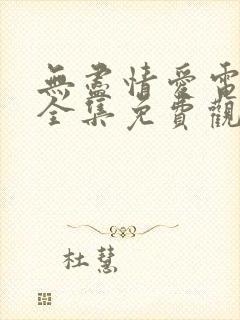 無盡情愛電
全集免費觀
杜慧